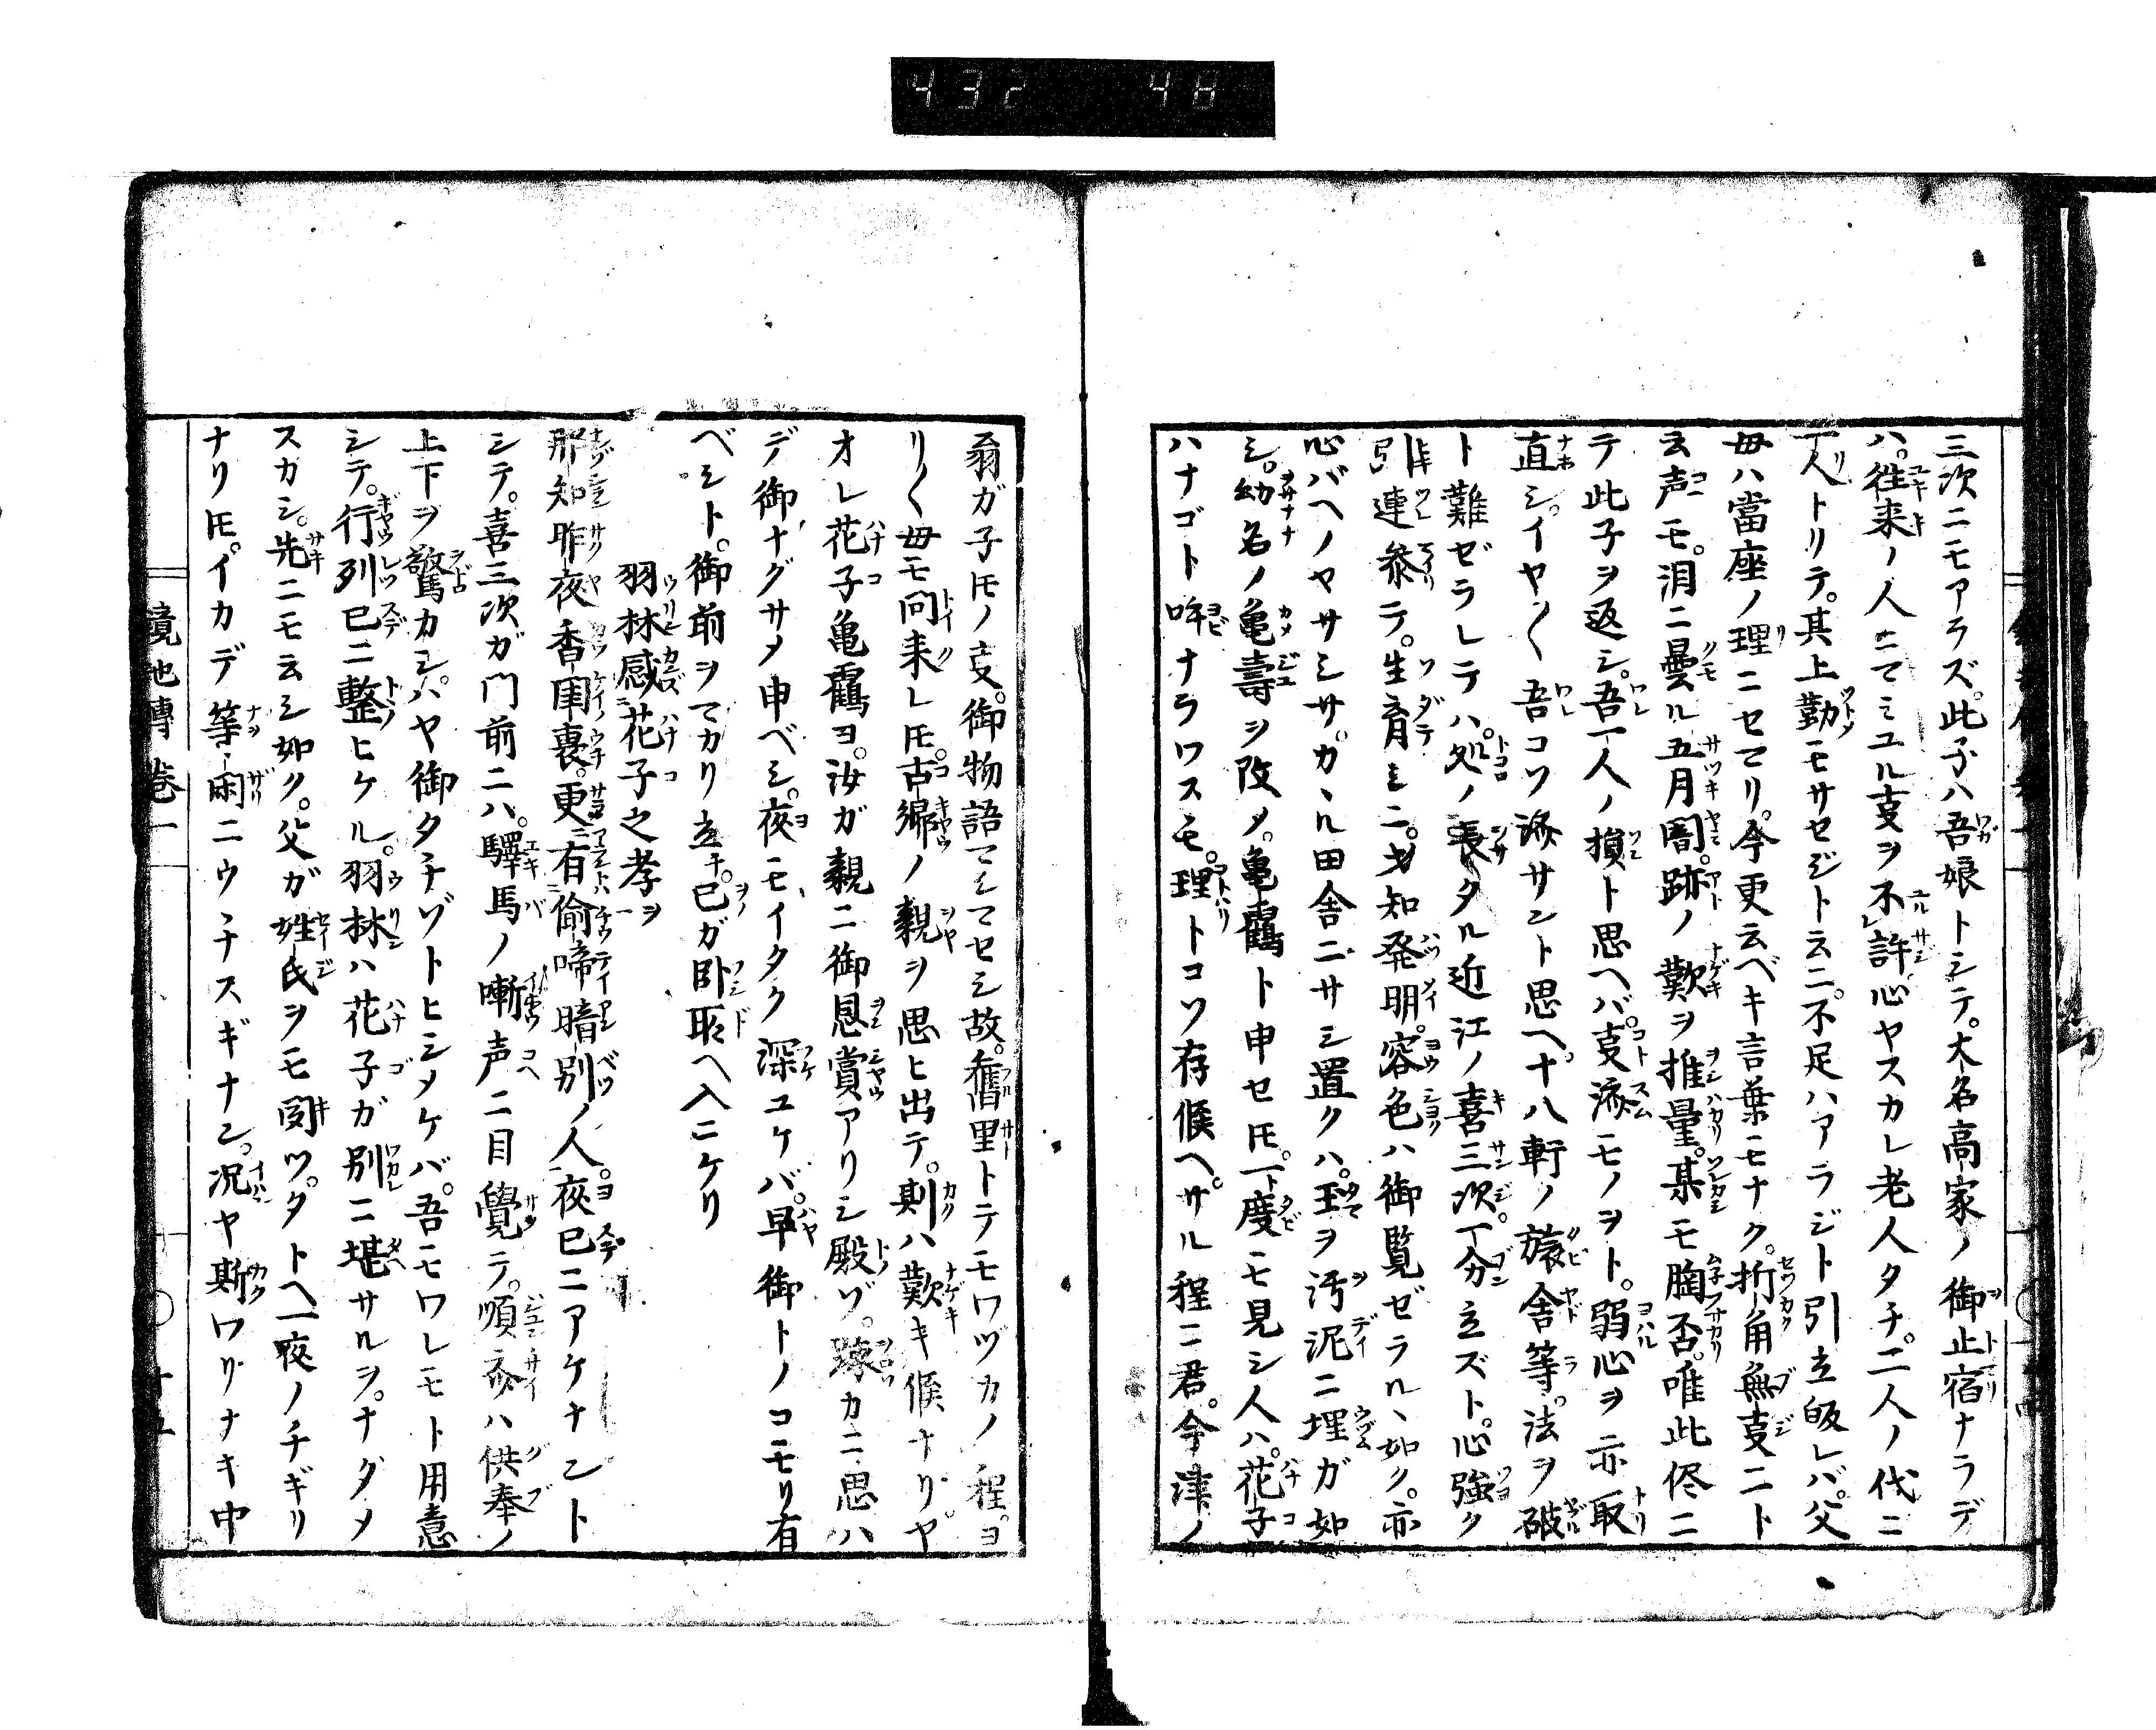 432 48
三次ニモアラズ。此子ハ吾娘トシテ。大名高家ノ御止宿ナラデ
ハ。往来ノ人ニマミユル叓ヲ不許。心ヤスカレ老人タチ。二人ノ代ニ
一人トリテ。其上勤モサセジト云ニ。不足ハアラジト引立皈レバ。父
母ハ當座ノ理ニセマリ。今更云ベキ言葉モナク。折角無叓ニト
云声モ。泪ニ曇ル五月闇。跡ノ歎ヲ推量。某モ胸否。唯此侭ニ
テ此子ヲ返シ。吾一人ノ損ト思ヘバ。叓済モノヲト。弱心ヲ亦取
直シ。イヤ〳〵吾コソ済サント思ヘ。十八軒ノ旅舎等。法ヲ破
ト難ゼラレテハ。処ノ長タル近江ノ喜三次一分立ズト。心強ク
引連参テ。生育シニ。才知発明。容色ハ御覧ゼラルヽ如ク。亦
心バヘノヤサシサ。カヽル田舎ニサシ置クハ。玉ヲ汚泥ニ埋ガ如
シ。幼名ノ亀壽ヲ改メ。亀鶴ト申セ𪜈。一度モ見シ人ハ。花子
ハナゴト呼ナラワスモ。理トコソ存候ヘ。サル程ニ君。今津ノ
翁ガ子𪜈ノ叓。御物語マシマセシ故。舊里トテモワヅカノ程。ヨ
リ〳〵毋モ問来レ𪜈。古郷ノ親ヲ思ヒ出テ。則ハ歎キ候ナリ。ヤ
オレ花子亀鶴ヨ。汝ガ親ニ御恩賞アリシ殿ゾ。疎カニ思ハ
デ御ナグサメ申ベシ。夜モイタク深ユケバ。早御トノコモリ有
ベシト。御前ヲマカリ立チ。已ガ臥所ヘ入ニケリ
羽林感花子之孝ヲ
那知昨夜香閨裏。更有偷啼暗別ノ人。夜已ニアケナントト
シテ。喜三次ガ門前ニハ。驛馬ノ嘶声ニ目覺テ。順斎ハ供奉ノ
上下ヲ驚カシ。ハヤ御タチゾトヒシメケバ。吾モワレモト用意
シテ。行列已ニ整ヒケル。羽林ハ花子ガ別ニ堪サルヲ。ナダメ
スカシ。先ニモ云シ如ク。父ガ姓氏ヲモ聞ツ。タトヘ一夜ノチギリ
ナリ𪜈。イカデ等閑ニウチスギナン。况ヤ斯ワリナキ中
鏡池傳 巻一 十五